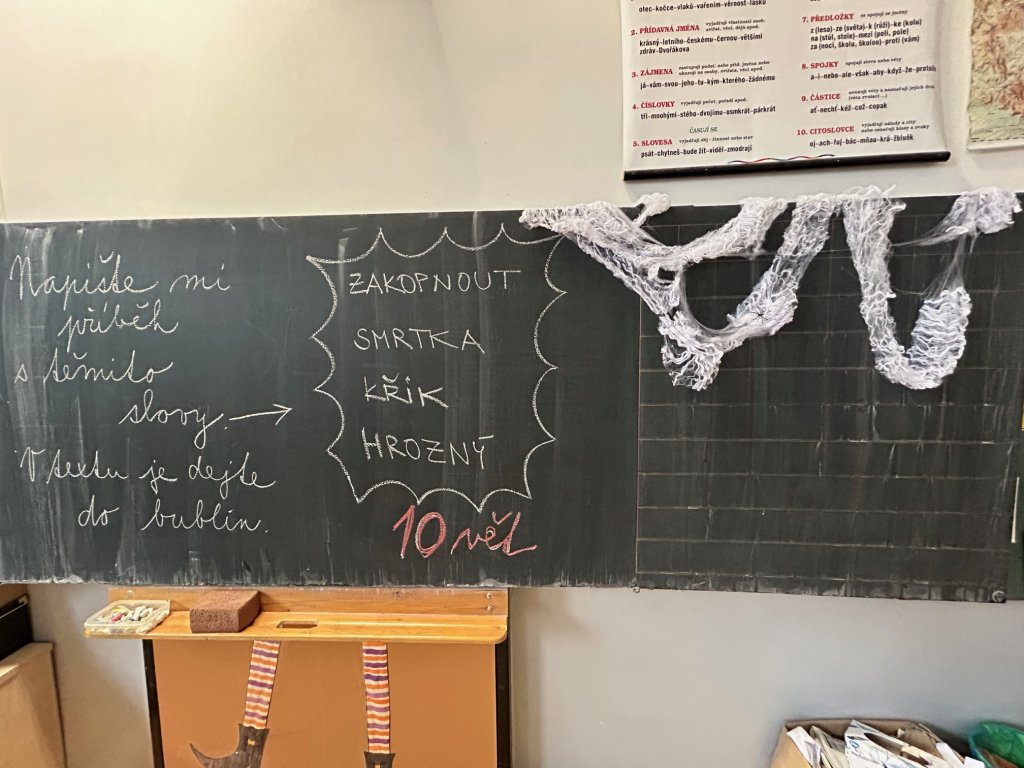 otec-kočce-vlaků-vařením-věrnost-lásku
2. PŘÍDAVNÁ JMÉNA vyjadřují vlastnosti osob, zvířat, věcí, dějů apod.
krásný-letního-českému-černou-většími
zdráv-Dvořákova
3. ZÁJMENA zastupují podst. nebo příd. jména nebo ukazují na osoby, zvířata, věci apod.
já-vám-svou-jeho-tu-kým-kterého-žádnému
4. ČÍSLOVKY vyjadřují počet, pořadí apod.
tři-mnohými-stého-dvojímu-osmkrát-párkrát
ČASUJÍ SE
5. SLOVESA vyjadřují děj - činnost nebo stav
psát-chytneš-bude žít-viděl-zmodrají
7. PŘEDLOŽKY se spojují se jmény
z (lesa)-ze (světa)-k (růži)-ke (kolu)
na (stůl, stole)-mezi (poli, pole)
za (noci, školu, školou)-proti (vám)
8. SPOJKY spojují slova nebo věty
a-i-nebo-ale-však-aby-když-že-protože
9. ČÁSTICE uvozují věty a naznačují jejich druh (věta zvolací ...)
ať-nechť-kéž-což-copak
10. CITOSLOVCE vyjadřují nálady a city nebo označují hlasy a zvuky
oj-ach-fuj-bác-mňau-krá-žbluňk
Napište mi
příběh
s těmito
slovy.
V textu je dejte
do bublin.
ZAKOPNOUT
SMRTKA
KŘIK
HROZNÝ
10 vět